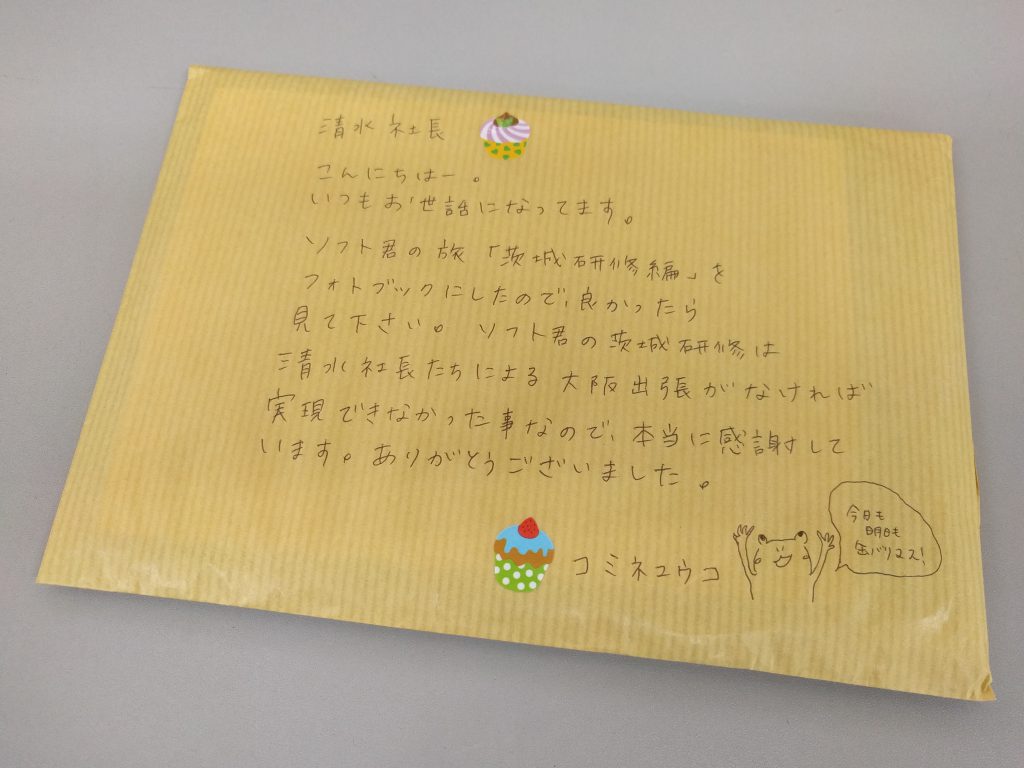 清水社長
こんにちはー。
いつもお世話になってます。
ソフト君の旅「茨城研修編」を
フォトブックにしたので、良かったら
見て下さい。 ソフト君の茨城研修は
清水社長たちによる 大阪出張がなければ
実現できなかった事なので、本当に感謝して
います。ありがとうございました。
コミネユウコ
今日も
明日も
缶バリマス!